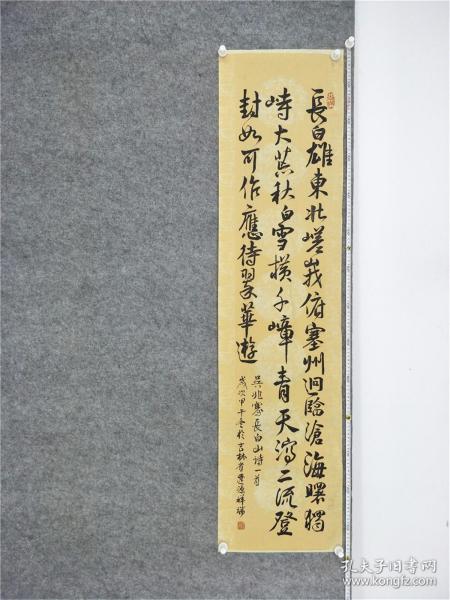 長白雄東北嵯峩俯塞州迥臨滄海曙獨
峙大荒秋白雪横千嶂青天瀉二流登
封如可作應待翠華遊
吴兆骞長白山诗一首
歲次甲午於吉林省遼源祥瑞
孔夫子旧书网
www.kongfz.com